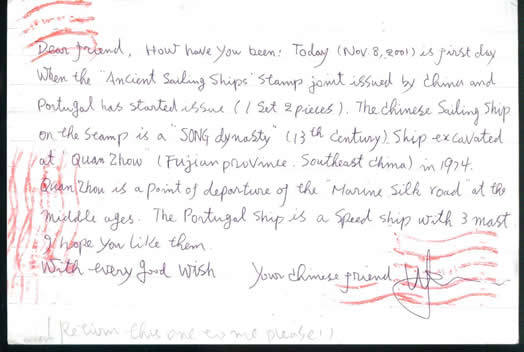 Dear friend, How have you been: Today (Nov. 8, 2001) is first day
When the "Ancient Sailing Ships" Stamp joint issued by China and
Portugal has started issue (1 Set 2 pieces). The Chinese Sailing Ship
on the stamp is a "SONG dynasty" (13th Century) Ship excavated
at "QuanZhou" (Fujian province. Southeast China) in 1974.
QuanZhou is a point of departure of the "Marine Silk road" at the
middle ages. The Portugal Ship is a Speed ship with 3 mast
I hope you like them.
With every good wish Your Chinese friend
Return this one to me please!!